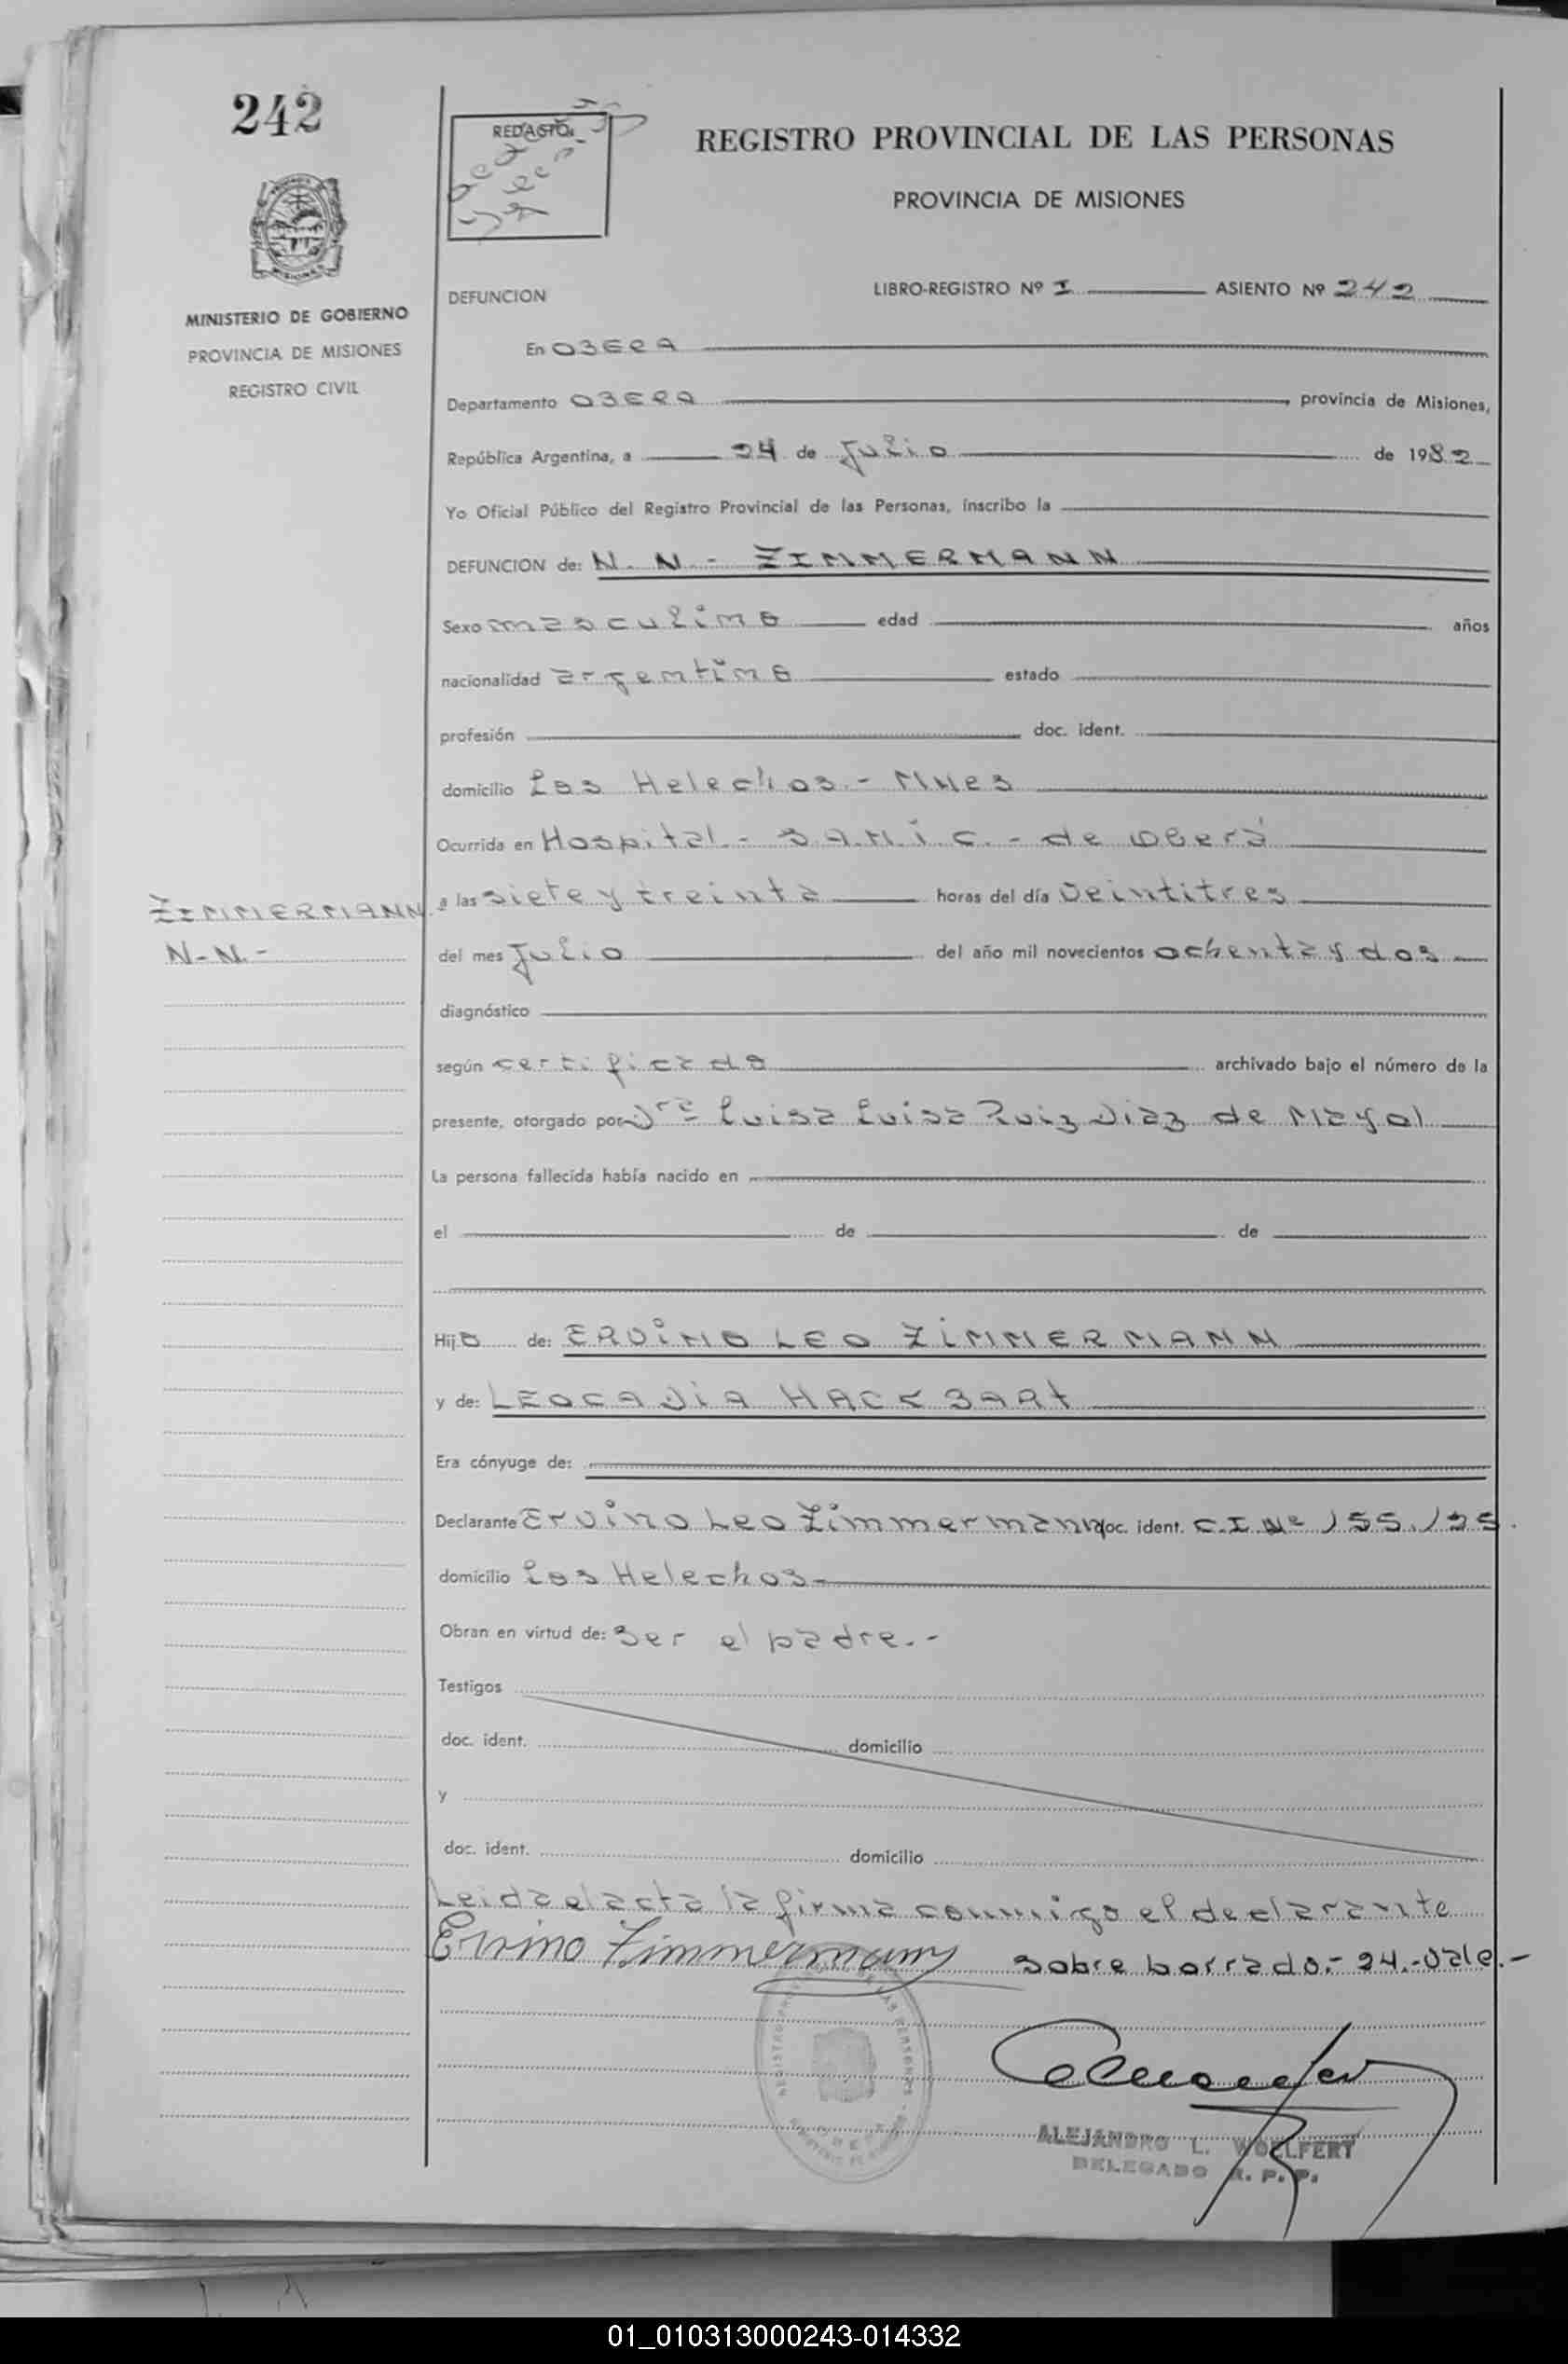 242
REDACTÓ:
REGISTRO PROVINCIAL DE LAS PERSONAS
PROVINCIA DE MISIONES
MINISTERIO DE GOBIERNO
PROVINCIA DE MISIONES
REGISTRO CIVIL
DEFUNCION
LIBRO-REGISTRO Nº I ASIENTO Nº 242
En OBERA
Departamento OBERA provincia de Misiones,
República Argentina, a 24 de Julio de 1982
Yo Oficial Público del Registro Provincial de las Personas, inscribo la
DEFUNCION de: N. N.- ZIMMERMANN
Sexo masculino edad años
nacionalidad argentino estado
profesión doc. ident.
domicilio Los Helechos.- Mnes
Ocurrida en Hospital.- S.A.M.i.C.- de Oberá
ZIMMERMANN
N-N.-
a las siete y treinta horas del día Veintitres
del mes Julio del año mil novecientos ochenta y dos
diagnóstico
según certificado archivado bajo el número de la
presente, otorgado por Dra Luisa Luisa Ruiz Diaz de Mayol
La persona fallecida había nacido en
el de de
Hijo de: ERVINO LEO ZIMMERMANN
y de: LEOCADIA HACKBART
Era cónyuge de:
Declarante Ervino Leo Zimmermann doc. ident. C.I Nº 155.125
domicilio Los Helechos-
Obran en virtud de: Ser el padre.-
Testigos
doc. ident. domicilio
y
doc. ident. domicilio
Leida el acta la firma conmigo el declarante
Ervino Zimmermann Sobre borrado.- 24.-Vale.-
ALEJANDRO L. WOELFERT
DELEGADO R. P. P.
01_010313000243-014332